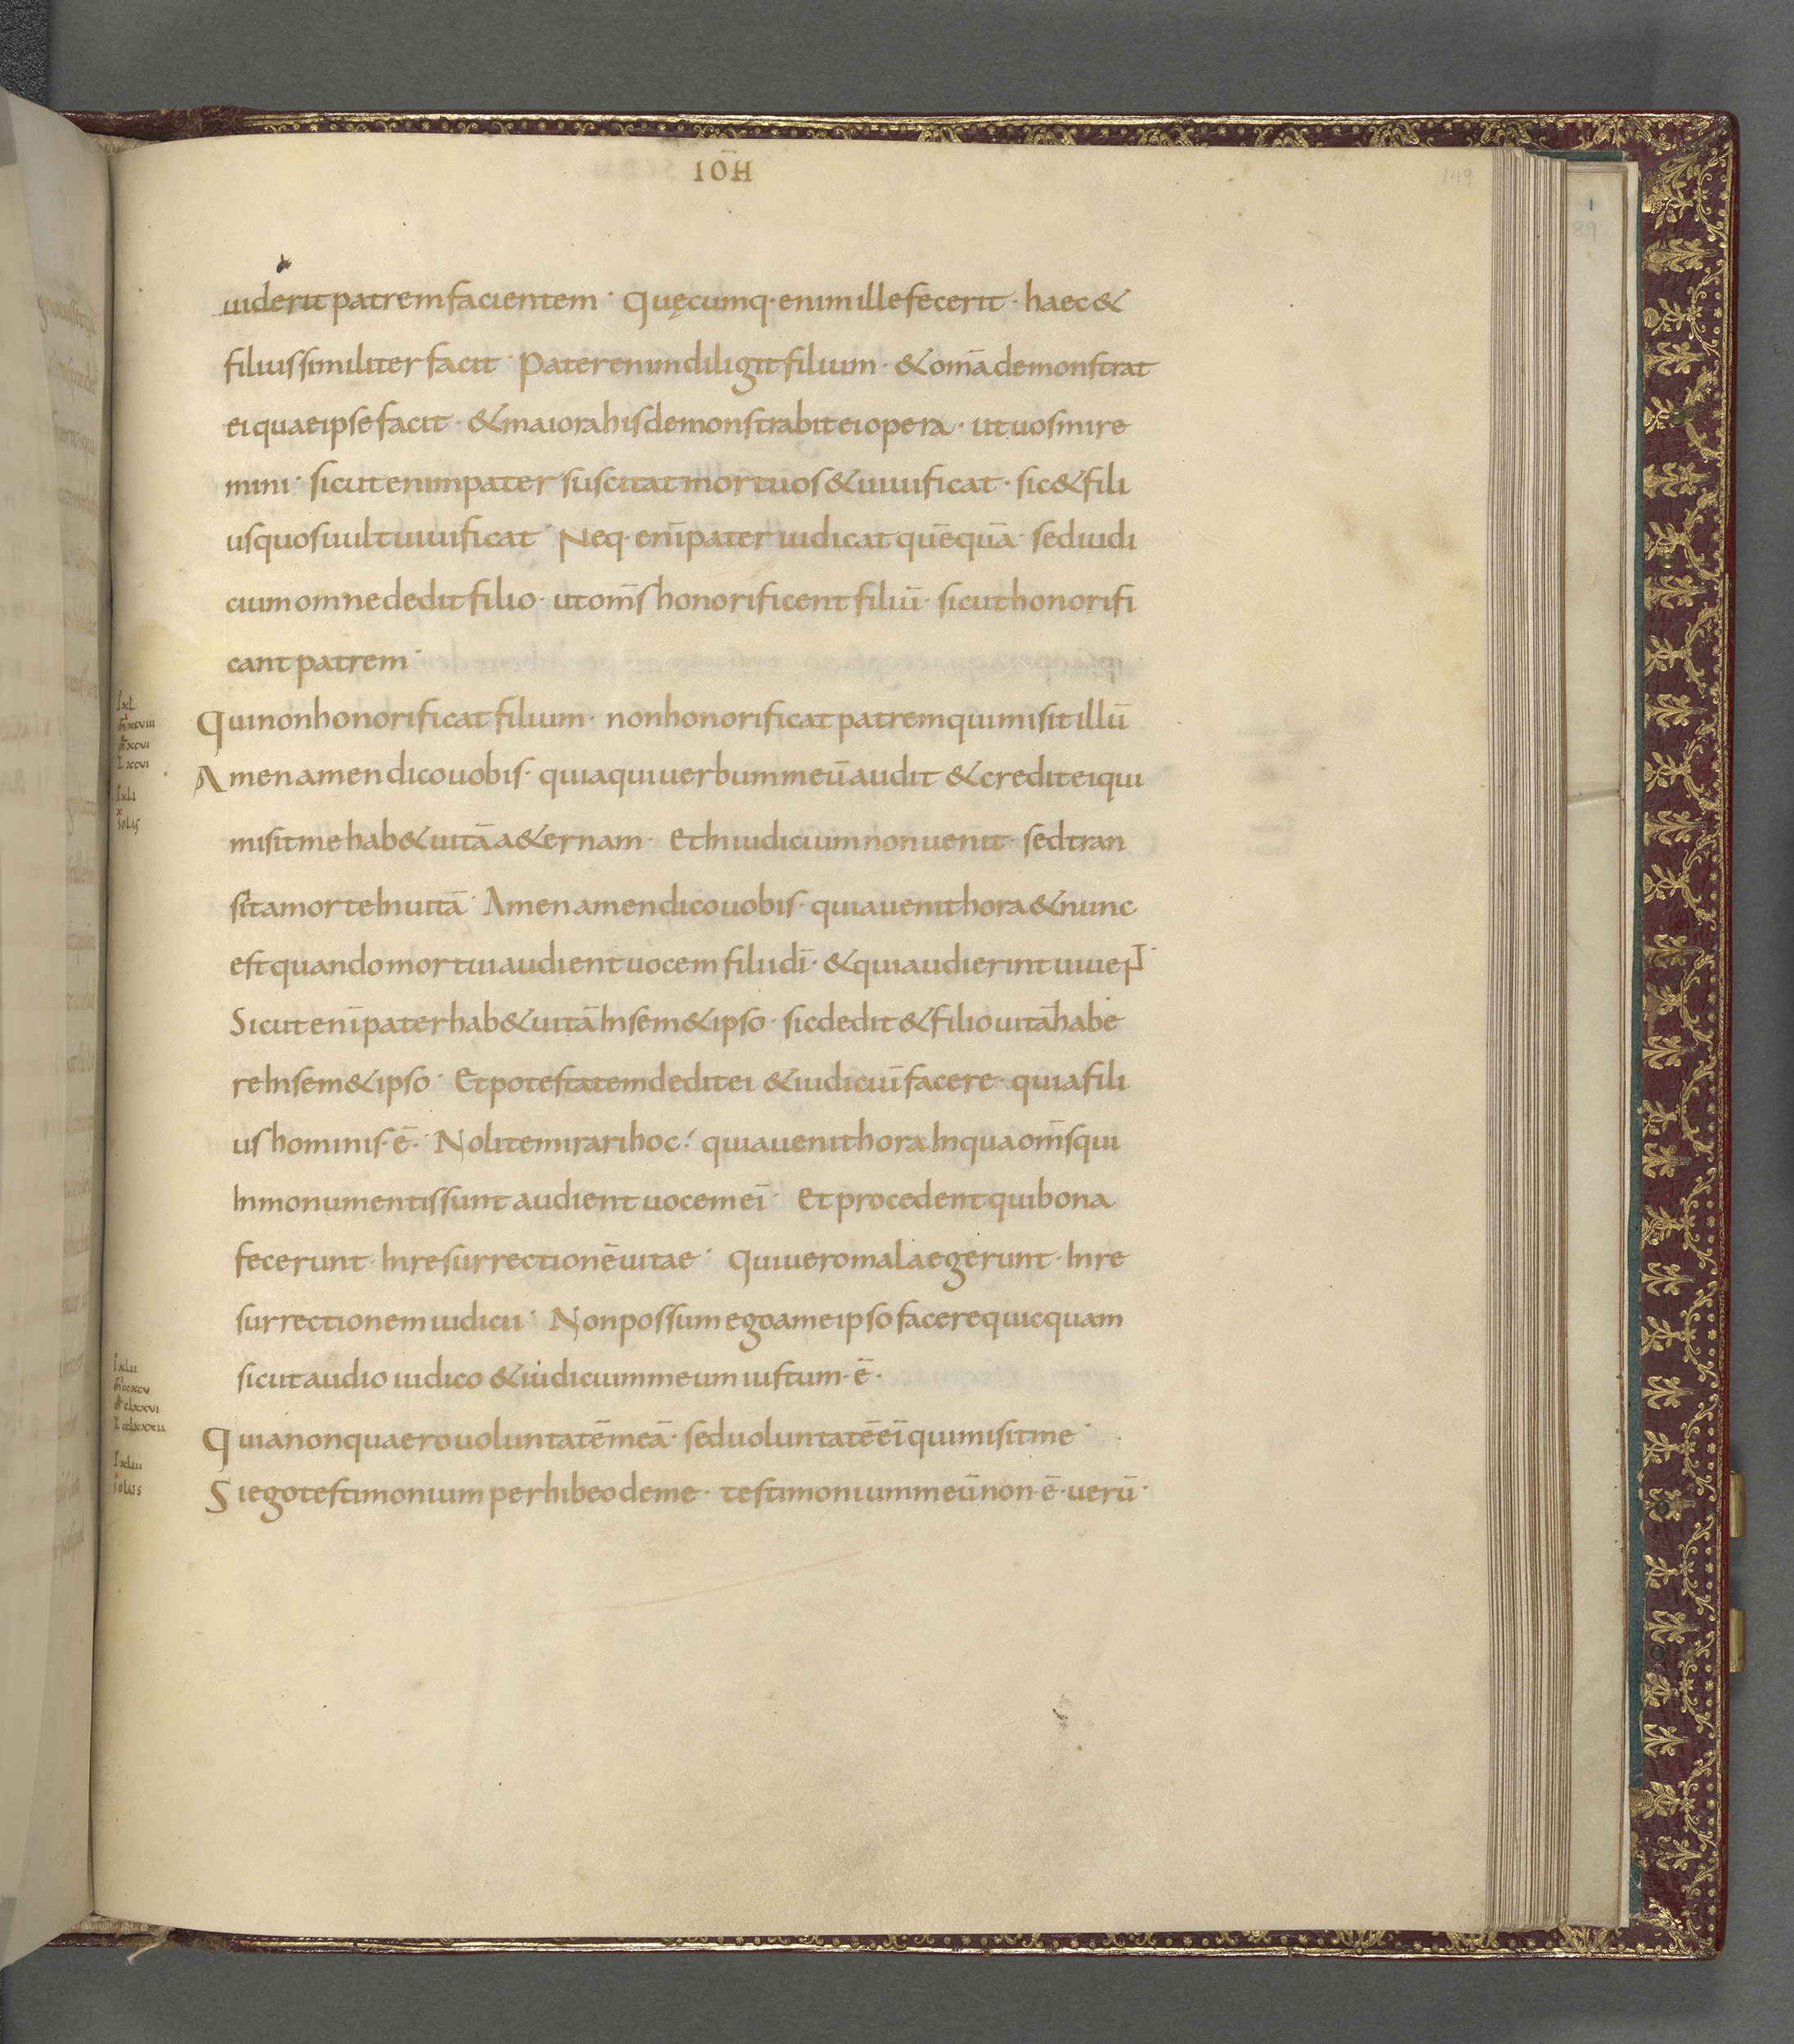 IOH̄
149
1
89
uiderit patrem facientem · Quęcumq· enim ille fecerit · haec &
filius similiter facit · Pater enim diligit filium · & om̄a demonstrat
ei quae ipse facit · & maiora his demonstrabit ei opera · ut uos mire
mini · sicut enim pater suscitat mortuos & uiuificat · sic & fili
us quos uult uiuificat · Neq· enī pater iudicat quēquā · sed iudi
cium omne dedit filio · ut om̄s honorificent filiū · sicut honorifi
cant patrem ·
Qui non honorificat filium · non honorificat patrem qui misit illū
Amen amen dico uobis · quia qui uerbum meū audit & credit ei qui
misit me hab& uitā a&ernam · Et In iudicium non uenit · sed tran
sit a morte In uitā · Amen amen dico uobis · quia uenit hora & nunc
est quando mortui audient uocem filii dī · & qui audierint uiuent ·
Sicut enī pater hab& uitā In sem&ipso · sic dedit & filio uitā habe
re In sem&ipso · Et potestatem dedit ei & iudiciū facere · quia fili
us hominis · ē · Nolite mirari hoc · quia uenit hora In qua om̄s qui
In monumentis sunt audient uocem eī · Et procedent qui bona
fecerunt · In resurrectionē uitae · Qui uero mala egerunt · In re
surrectionem iudicii · Non possum ego a me ipso facere quicquam
sicut audio iudico & iudicium meum iustum · ē ·
Quia non quaero uoluntatē meā · sed uoluntatē eī qui misit me ·
Si ego testimonium perhibeo de me · testimonium meū non · ē · uerū ·
I xl
xcviii
xcvi
L xcvi
I xli
x
solus
I xlii
L cclxxxii
I xliii
x
solus